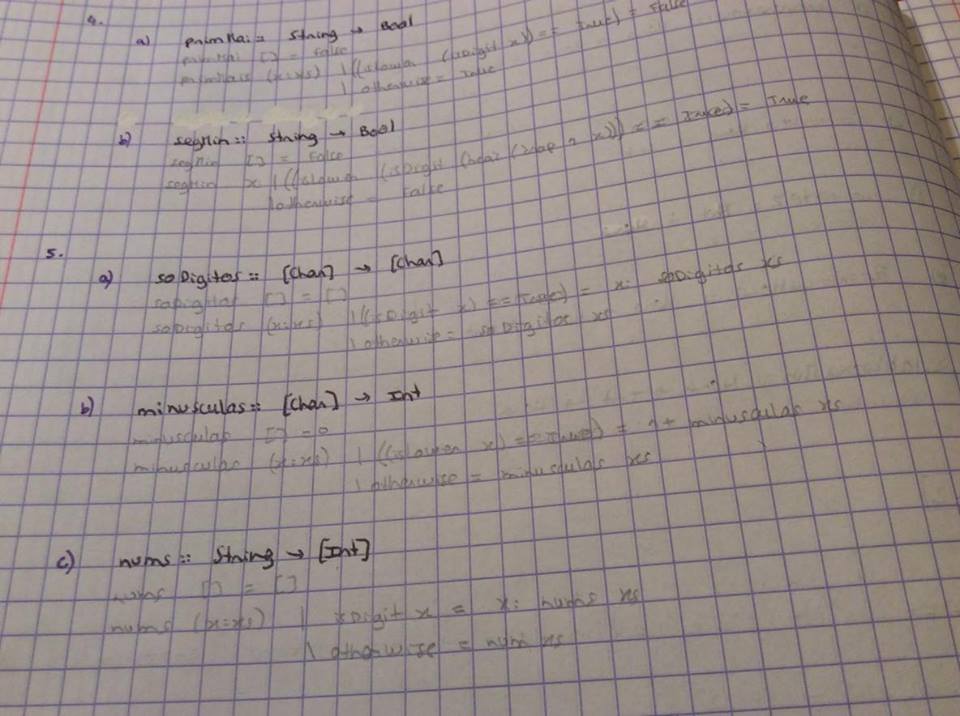 4.
a) primMai :: String → Bool
primMai [] = False
primMais (x:xs) | ((isLower (isDigit x)) == True) = False
| otherwise = True
b) segMin :: String → Bool
segMin [] = False
segMin x | ((isLower (isDigit (head (drop 1 x))) == True) = True
| otherwise = False
5.
a) soDigitos :: [Char] → [Char]
soDigitos [] = []
soDigitos (x:xs) | ((isDigit x) == True) = x: soDigitos xs
| otherwise = soDigitos xs
b) minusculas :: [Char] → Int
minusculas [] = 0
minusculas (x:xs) | ((isLower x) == True) = 1+ minusculas xs
| otherwise = minusculas xs
c) nums :: String → [Int]
nums [] = []
nums (x:xs) | isDigit x = x: nums xs
| otherwise = num xs